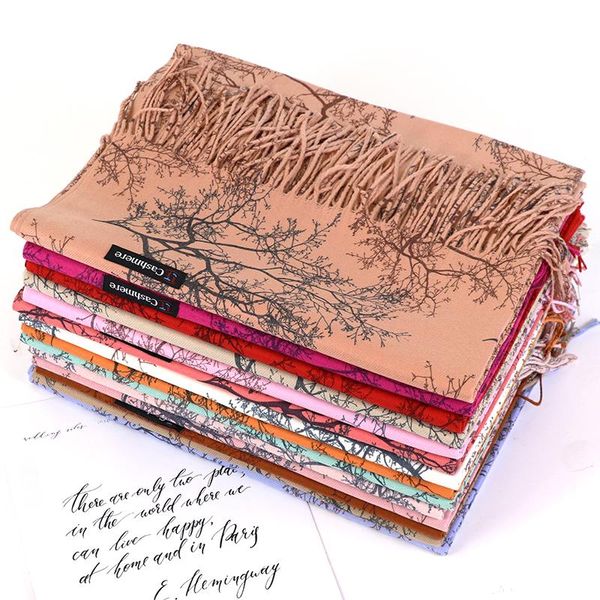 Cashmere
Cashmere
there are only two place,
in the world where we
can live happy,
at home and in Paris
E. Hemingway